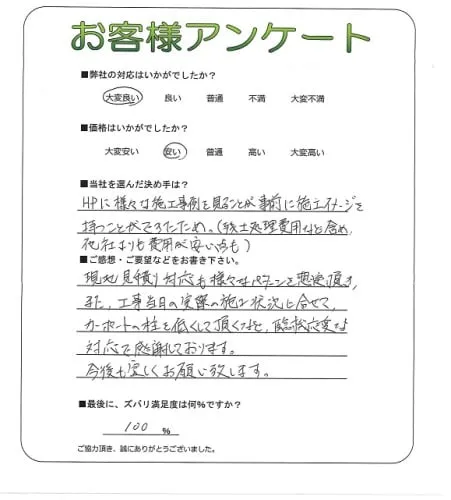 お客様アンケート
■弊社の対応はいかがでしたか?
大変良い 良い 普通 不満 大変不満
■価格はいかがでしたか?
大変安い 安い 普通 高い 大変高い
■当社を選んだ決め手は?
HPに様々な施工事例を見ることが事前に施工イメージを
持つことができたため。(残土処理費用なども含め、
他社よりも費用が安い点も)
■ご感想・ご要望などをお書き下さい。
現地見積り対応も様々なパターンを想定頂き、
また、工事当日の実際の施工状況に合せて、
カーポートの柱を低くして頂くなど、臨機応変な
対応で感謝しております。
今後も宜しくお願い致します。
■最後に、ズバリ満足度は何%ですか?
100 %
ご協力頂き、誠にありがとうございました。